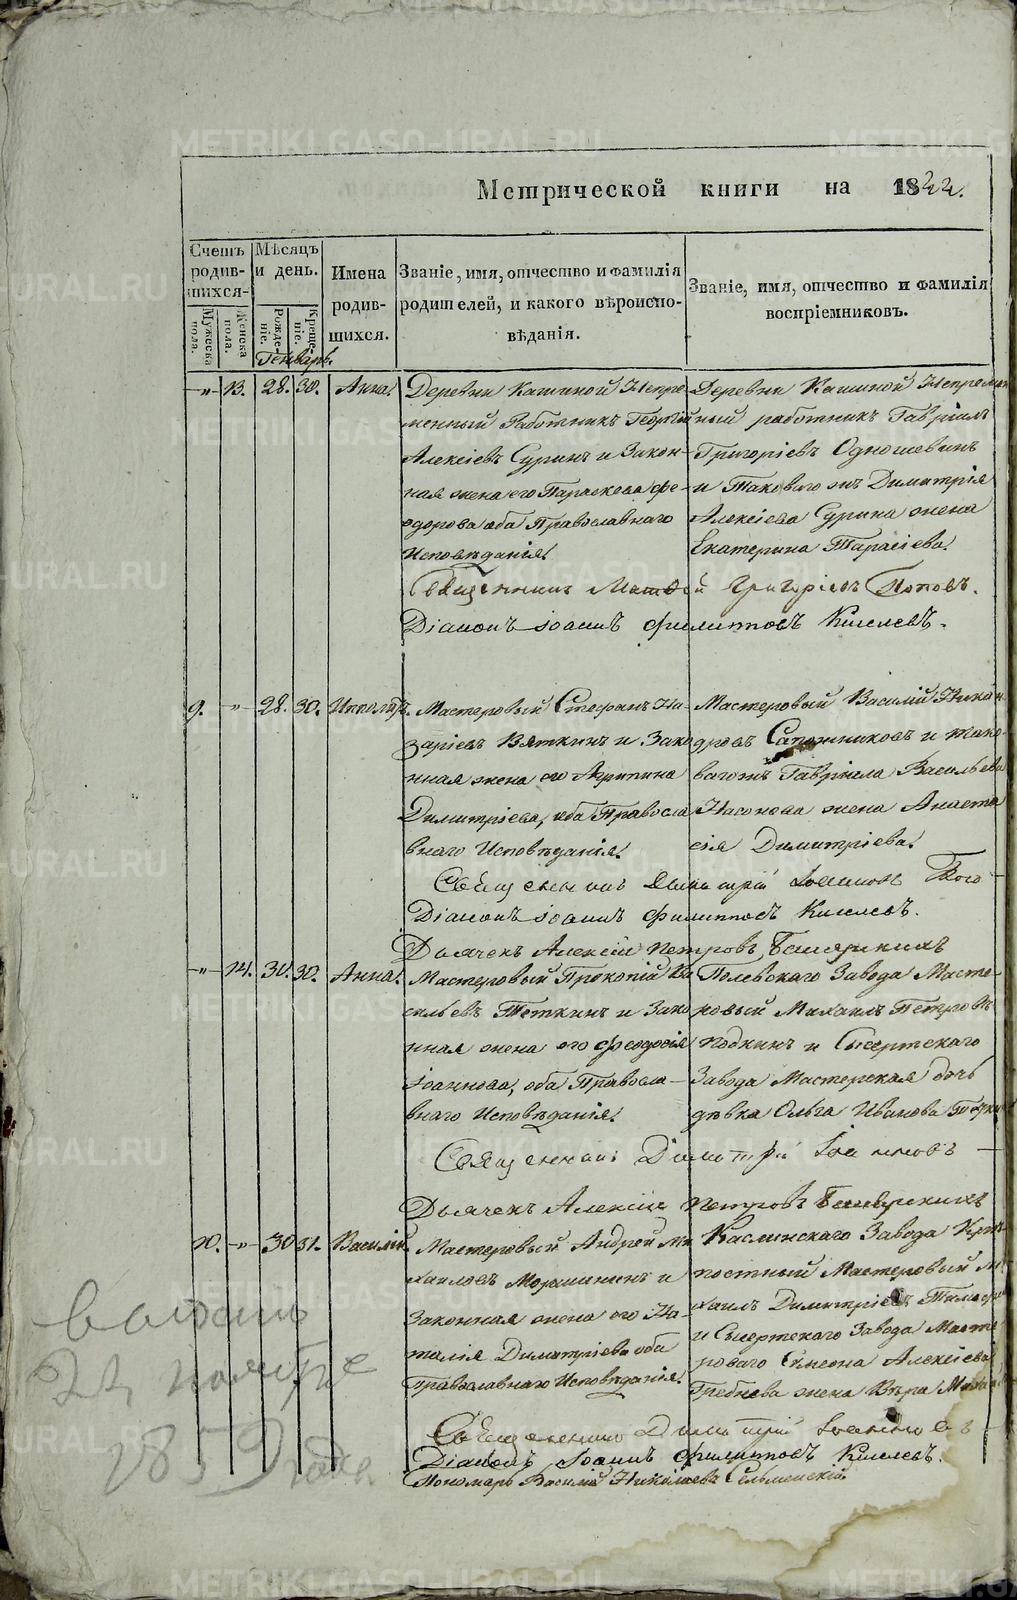 Метрической книги на 1842.
Счетъ родившихся.
Мѣсяцъ и день.
Имена родившихся.
Званіе, имя, отчество и фамилія родителей, и какого вѣроисповѣданія.
Званіе, имя, отчество и фамилія воспріемниковъ.
Мужеска пола.
Женска пола.
Рожденіе.
Крещеніе.
Генварь.
-"- 13. 28. 30. Анна.
Деревни Кашиной Непре-
менный Работникъ Георгій
Алексіевъ Суринъ и Закон-
ная жена его Параскева Фе-
одорова оба Православнаго
Исповѣданія.
Деревни Кашиной Непремѣн
ный работникъ Гавріилъ
Григоріевъ
и Таковагожъ Димитрія
Алексіева Сурина жена
Екатерина Тарасіева.
Священникъ Матѳей Григоріевъ Поповъ.
Діаконъ Іоаннъ Филипповъ Киселевъ.
9. -"- 28. 30. Ипполитъ.
Мастеровый Стефанъ На-
заріевъ Вяткинъ и Зако
нная жена его Агрипина
Димитріева, оба Правосла
внаго Исповѣданія.
Мастеровый Василій Никан
дровъ Сапожниковъ и тако
вагожъ Гавріила Васильева
Насонова жена Анаста
сія Димитріева.
Священникъ Димитрій Іоанновъ
Діаконъ Іоаннъ Филипповъ Киселевъ.
Дьячекъ Алексій Петровъ
-"- 14. 30. 30. Анна.
Мастеровый Прокопій Ва
сильевъ Теткинъ и Зако
нная жена его Феодосія
Іоаннова, оба Правосла-
внаго Исповѣданія.
Полевскаго Завода Масте-
ровый Михаилъ Петровъ
и Сысертскаго
Завода Мастерская дочь
дѣвка Ольга Иванова
Священникъ Димитрій Іоанновъ
Дьячекъ Алексій Петровъ
10. -"- 30 31. Василій.
Мастеровый Андрей Ми
хаиловъ Моршининъ и
Законная жена его На-
талія Димитріева оба
Православнаго Исповѣданія.
Каслинскаго Завода Крѣ
постный Мастеровый М
хаилъ Димитріевъ
и Сысертскаго Завода Масте
роваго Симеона Алексіева
Гребнева жена Вѣра
Священникъ Димитрій Іоанновъ
Діаконъ Іоаннъ Филипповъ Киселевъ.
Пономарь Василій Николаевъ
22 ноября
1859 года
METRIKI.GASO-URAL.RU